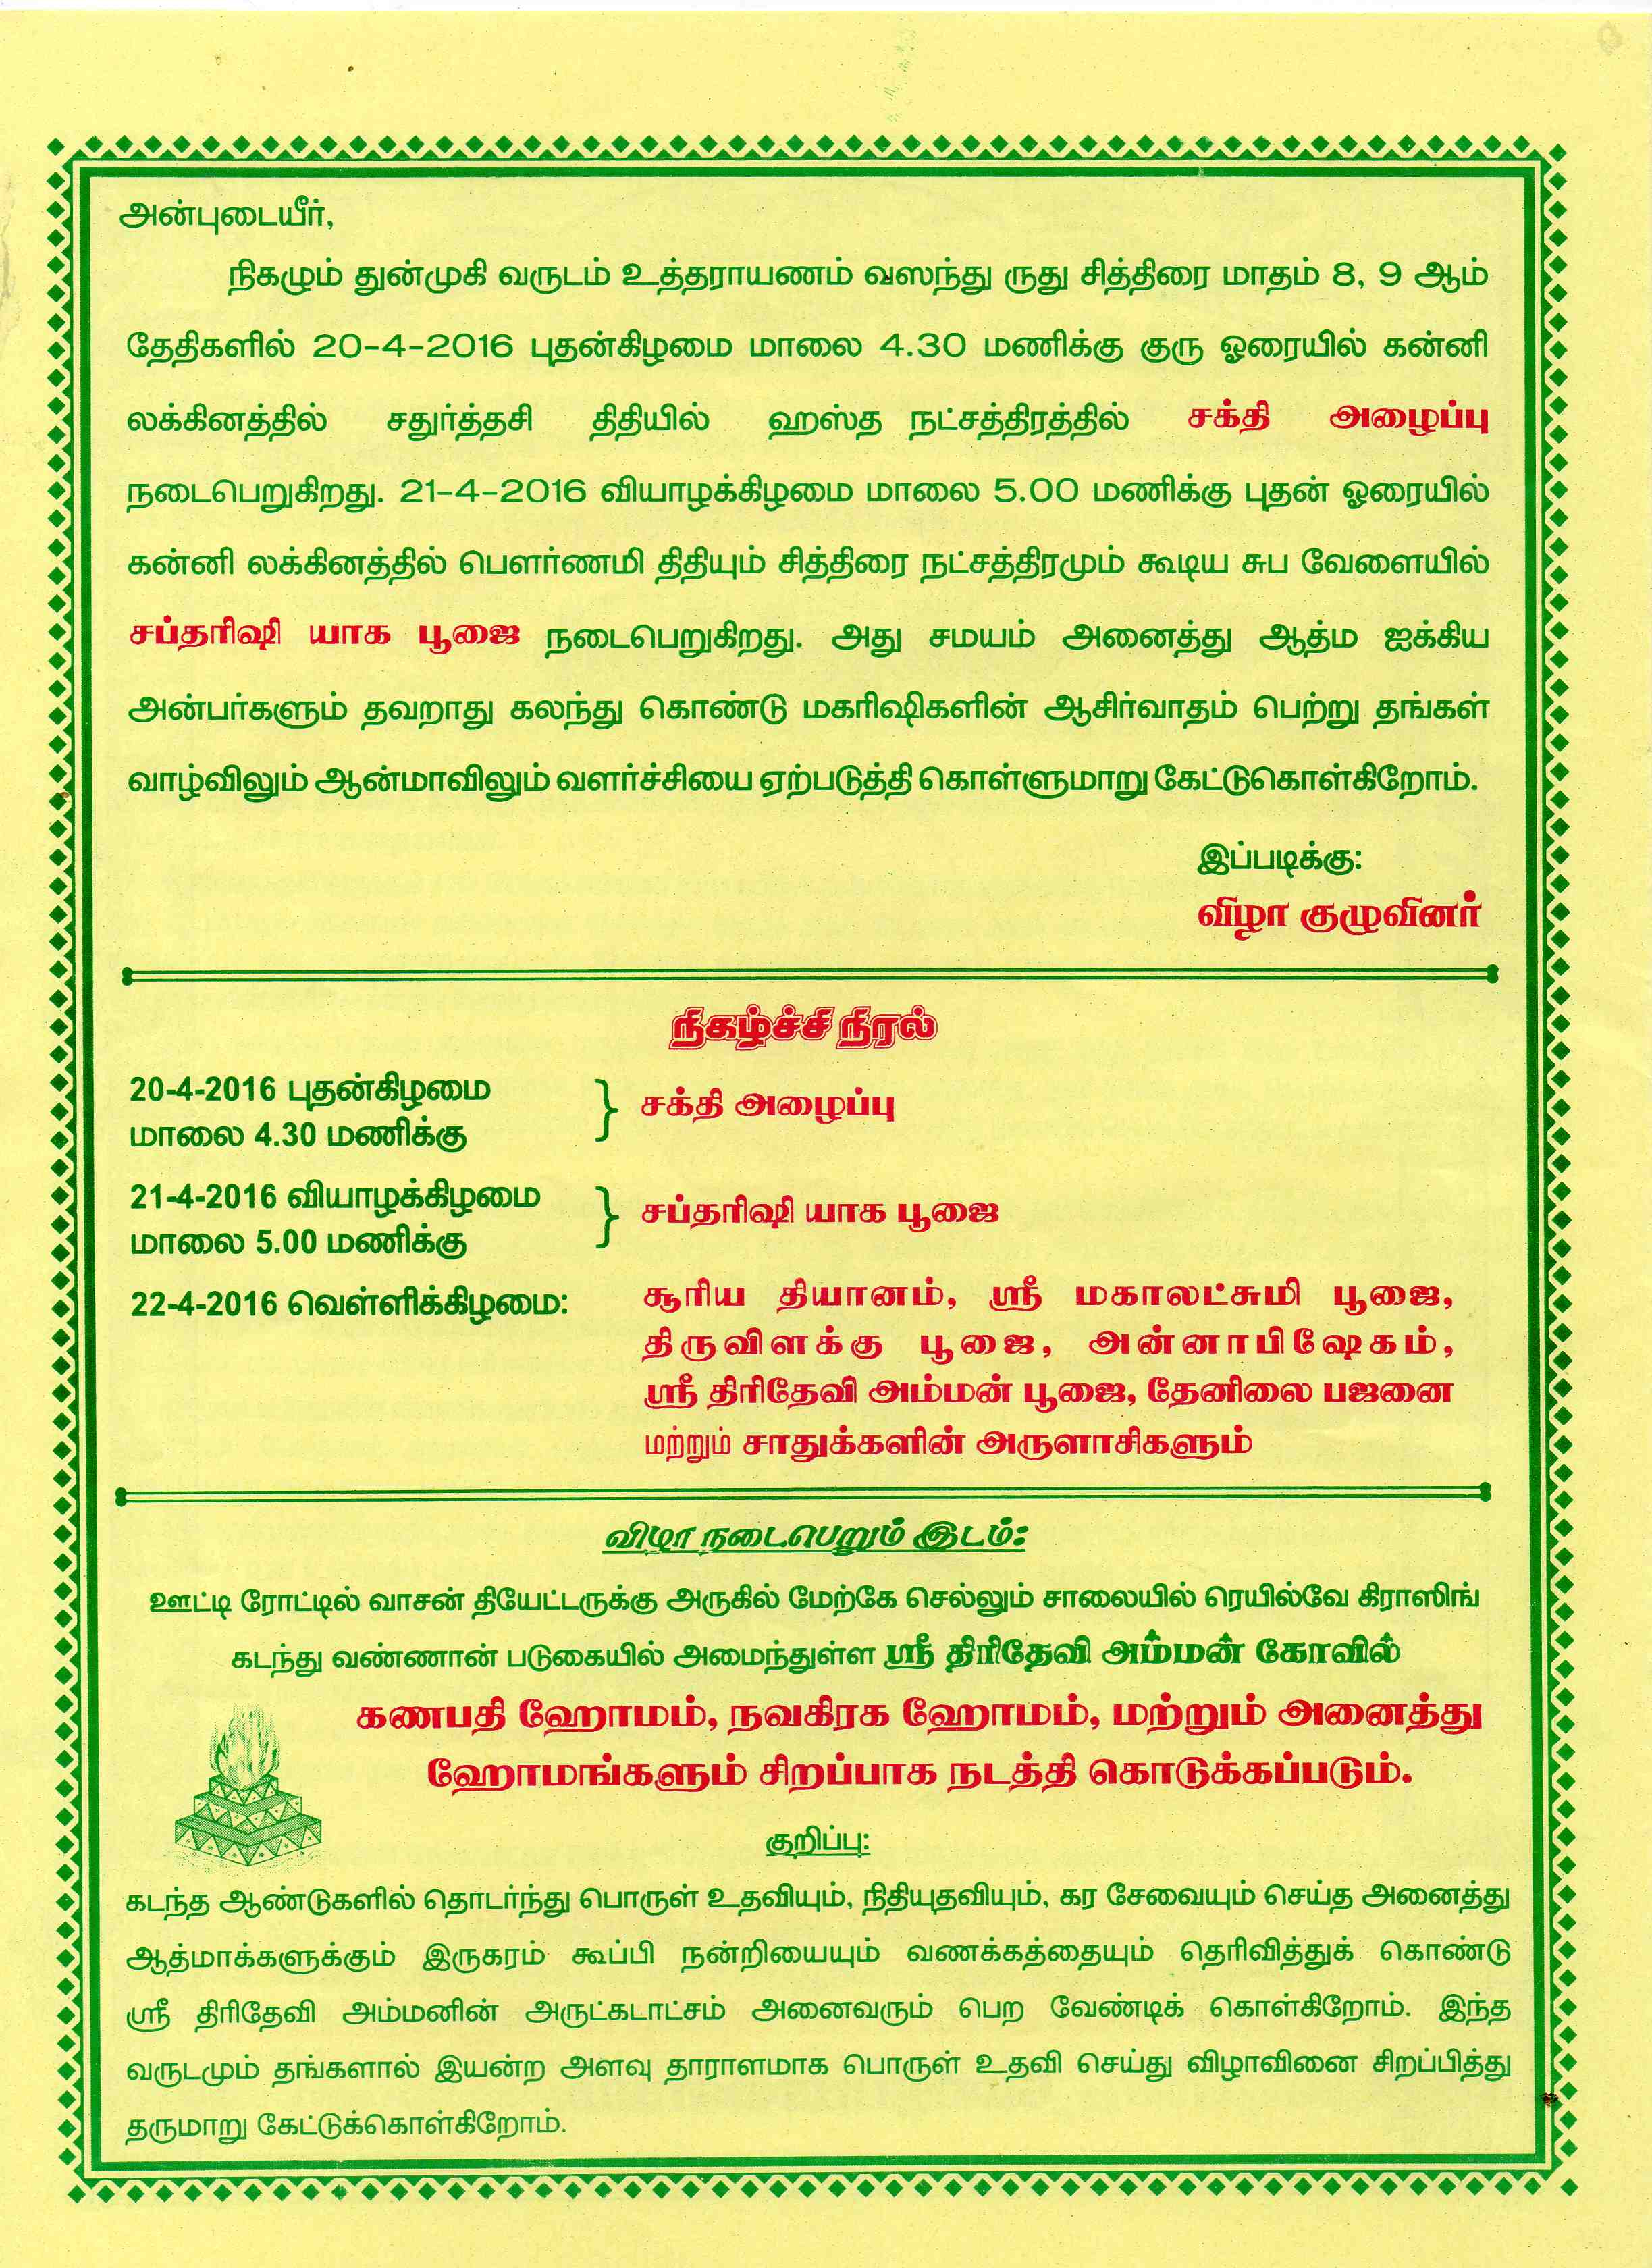 அன்புடையீர்,
நிகழும் துன்முகி வருடம் உத்தராயணம் வஸந்து ருது சித்திரை மாதம் 8, 9 ஆம்
தேதிகளில் 20-4-2016 புதன்கிழமை மாலை 4.30 மணிக்கு குரு ஓரையில் கன்னி
லக்கினத்தில் சதுர்த்தசி திதியில் ஹஸ்த நட்சத்திரத்தில் சக்தி அழைப்பு
நடைபெறுகிறது. 21-4-2016 வியாழக்கிழமை மாலை 5.00 மணிக்கு புதன் ஓரையில்
கன்னி லக்கினத்தில் பௌர்ணமி திதியும் சித்திரை நட்சத்திரமும் கூடிய சுப வேளையில்
சப்தரிஷி யாக பூஜை நடைபெறுகிறது. அது சமயம் அனைத்து ஆத்ம ஐக்கிய
அன்பர்களும் தவறாது கலந்து கொண்டு மகரிஷிகளின் ஆசிர்வாதம் பெற்று தங்கள்
வாழ்விலும் ஆன்மாவிலும் வளர்ச்சியை ஏற்படுத்தி கொள்ளுமாறு கேட்டுகொள்கிறோம்.
இப்படிக்கு:
விழா குழுவினர்
நிகழ்ச்சி நிரல்
20-4-2016 புதன்கிழமை
மாலை 4.30 மணிக்கு } சக்தி அழைப்பு
21-4-2016 வியாழக்கிழமை
மாலை 5.00 மணிக்கு } சப்தரிஷி யாக பூஜை
22-4-2016 வெள்ளிக்கிழமை: சூரிய தியானம், ஸ்ரீ மகாலட்சுமி பூஜை,
திருவிளக்கு பூஜை, அன்னாபிஷேகம்,
ஸ்ரீ திரிதேவி அம்மன் பூஜை, தேனிலை பஜனை
மற்றும் சாதுக்களின் அருளாசிகளும்
விழா நடைபெறும் இடம்:
ஊட்டி ரோட்டில் வாசன் தியேட்டருக்கு அருகில் மேற்கே செல்லும் சாலையில் ரெயில்வே கிராஸிங்
கடந்து வண்ணான் படுகையில் அமைந்துள்ள ஸ்ரீ திரிதேவி அம்மன் கோவில்
கணபதி ஹோமம், நவகிரக ஹோமம், மற்றும் அனைத்து
ஹோமங்களும் சிறப்பாக நடத்தி கொடுக்கப்படும்.
குறிப்பு:
கடந்த ஆண்டுகளில் தொடர்ந்து பொருள் உதவியும், நிதியுதவியும், கர சேவையும் செய்த அனைத்து
ஆத்மாக்களுக்கும் இருகரம் கூப்பி நன்றியையும் வணக்கத்தையும் தெரிவித்துக் கொண்டு
ஸ்ரீ திரிதேவி அம்மனின் அருட்கடாட்சம் அனைவரும் பெற வேண்டிக் கொள்கிறோம். இந்த
வருடமும் தங்களால் இயன்ற அளவு தாராளமாக பொருள் உதவி செய்து விழாவினை சிறப்பித்து
தருமாறு கேட்டுக்கொள்கிறோம்.